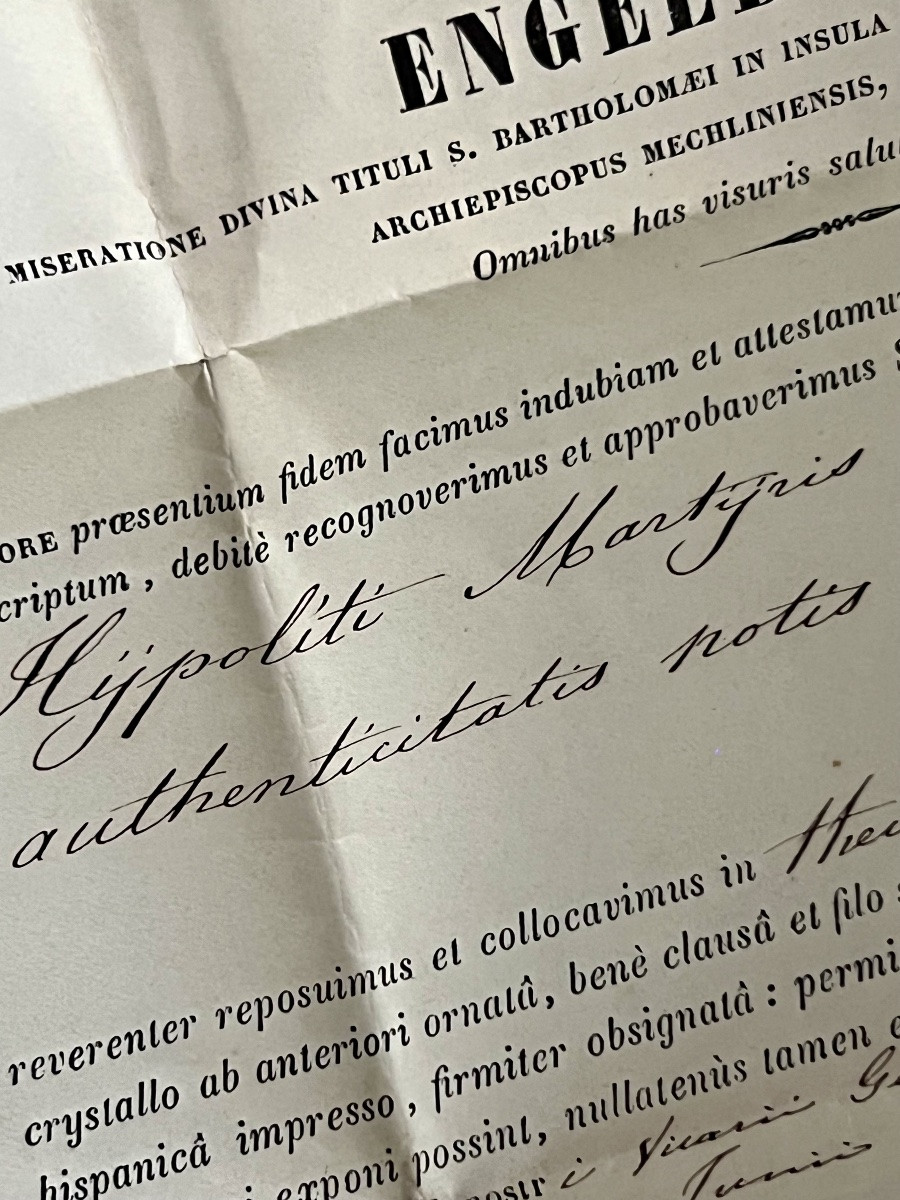 ENGEL
MISERATIONE DIVINA TITULI S. BARTHOLOMÆI IN INSULA
ARCHIEPISCOPUS MECHLINIENSIS,
Omnibus has visuris salu
ORE præsentium fidem facimus indubiam et attestamu
criptum, debitè recognoverimus et approbaverimus S
Hyppoliti Martyris
authenticitatis notis
reverenter reposuimus et collocavimus in thec
crystallo ab anteriori ornatâ, benè clausâ et filo s
hispanicâ impresso, firmiter obsignatâ : permi
exponi possint, nullatenùs tamen e
nostri Vicarii Ge
Junii